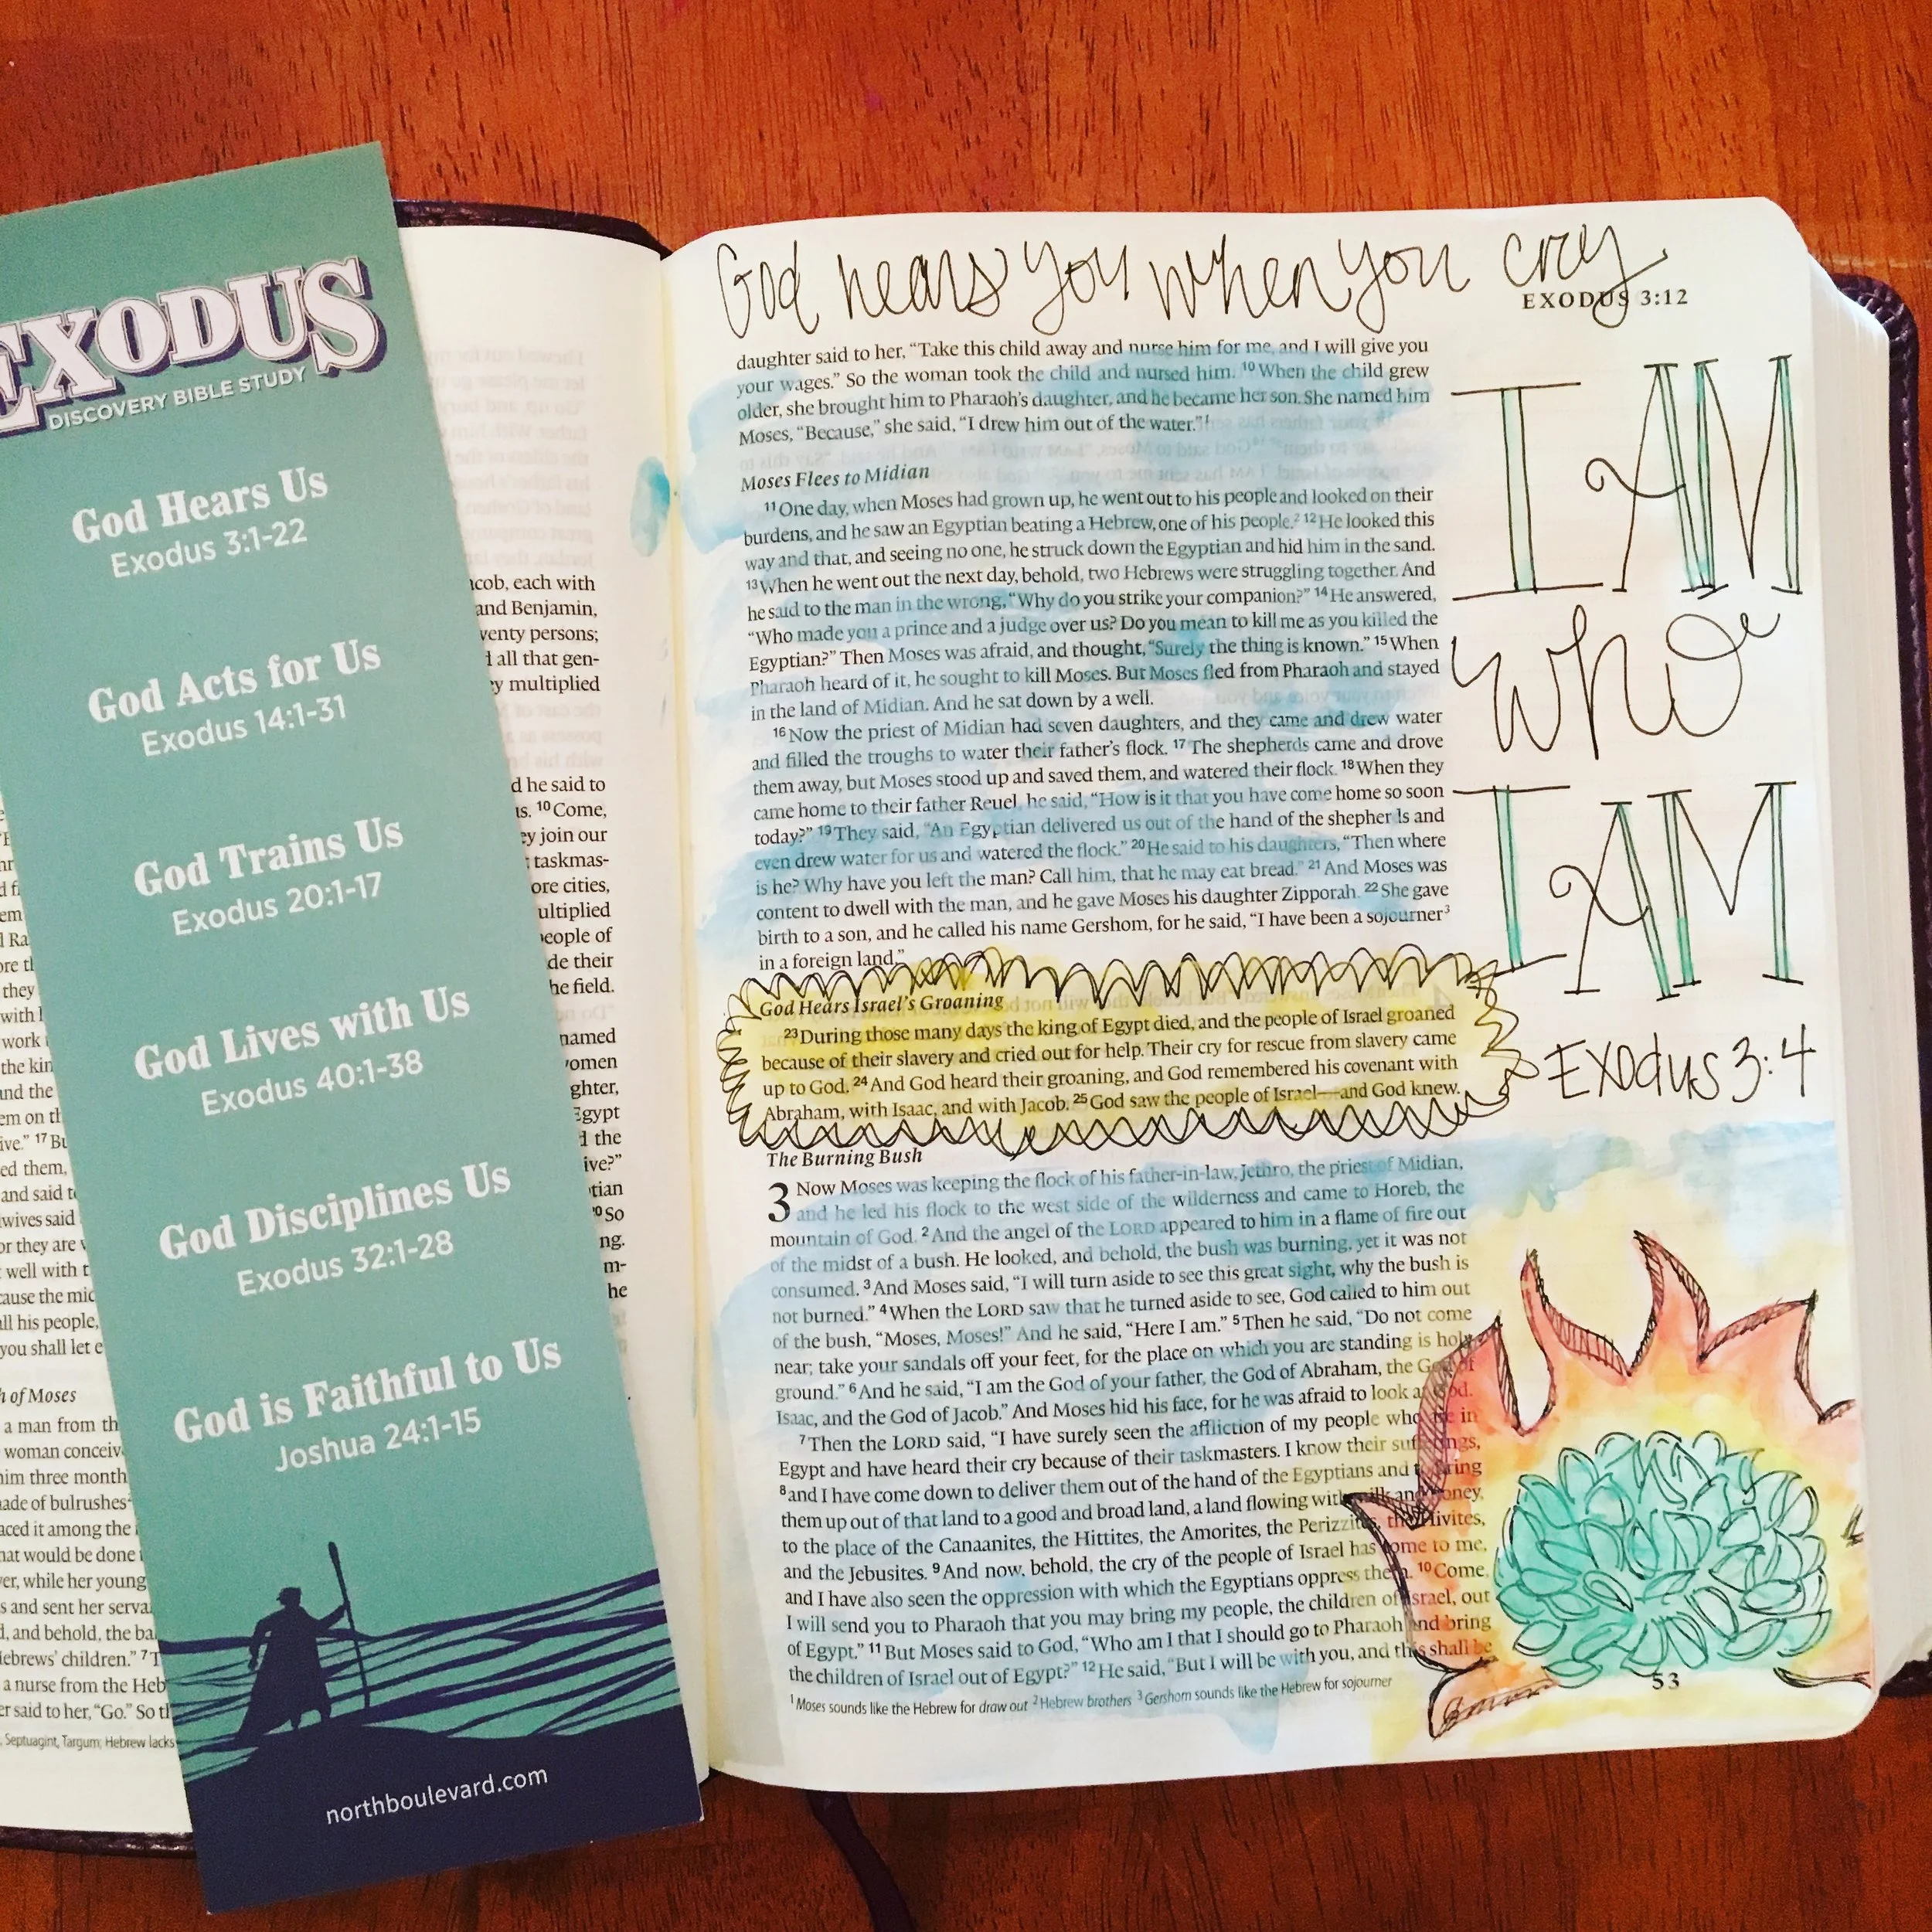 EXODUS
DISCOVERY BIBLE STUDY
God Hears Us
Exodus 3:1-22
God Acts for Us
Exodus 14:1-31
God Trains Us
Exodus 20:1-17
God Lives with Us
Exodus 40:1-38
God Disciplines Us
Exodus 32:1-28
God is Faithful to Us
Joshua 24:1-15
northboulevard.com
each with
and Benjamin,
persons;
all that gen-
multiplied
he said to
¹⁰Come,
join our
taskmas-
cities,
people of
de their
he field.
named
Egypt
the
ive?"
²⁰So
he
they
with
work
the kin
and the
em on th
ive." ¹⁷Bu
ed them,
and said t
wives said
or they are
well with t
cause the mid
all his people,
you shall let e
of Moses
a man from th
woman conceiv
him three month
made of bulrushes
aced it among the
hat would be done
er, while her young
s and sent her serva
d, and behold, the ba
Hebrews' children." ⁷T
a nurse from the Heb
er said to her, "Go." So th
Septuagint, Targum; Hebrew lacks
God hears you when you cry
EXODUS 3:12
daughter said to her, "Take this child away and nurse him for me, and I will give you
your wages." So the woman took the child and nursed him. ¹⁰When the child grew
older, she brought him to Pharaoh's daughter, and he became her son. She named him
Moses, "Because," she said, "I drew him out of the water."¹
Moses Flees to Midian
¹¹One day, when Moses had grown up, he went out to his people and looked on their
burdens, and he saw an Egyptian beating a Hebrew, one of his people.² ¹²He looked this
way and that, and seeing no one, he struck down the Egyptian and hid him in the sand.
¹³When he went out the next day, behold, two Hebrews were struggling together. And
he said to the man in the wrong, "Why do you strike your companion?" ¹⁴He answered,
"Who made you a prince and a judge over us? Do you mean to kill me as you killed the
Egyptian?" Then Moses was afraid, and thought, "Surely the thing is known." ¹⁵When
Pharaoh heard of it, he sought to kill Moses. But Moses fled from Pharaoh and stayed
in the land of Midian. And he sat down by a well.
¹⁶Now the priest of Midian had seven daughters, and they came and drew water
and filled the troughs to water their father's flock. ¹⁷The shepherds came and drove
them away, but Moses stood up and saved them, and watered their flock. ¹⁸When they
came home to their father Reuel, he said, "How is it that you have come home so soon
today?" ¹⁹They said, "An Egyptian delivered us out of the hand of the shepherds and
even drew water for us and watered the flock." ²⁰He said to his daughters, "Then where
is he? Why have you left the man? Call him, that he may eat bread." ²¹And Moses was
content to dwell with the man, and he gave Moses his daughter Zipporah. ²²She gave
birth to a son, and he called his name Gershom, for he said, "I have been a sojourner³
in a foreign land."
God Hears Israel's Groaning
²³During those many days the king of Egypt died, and the people of Israel groaned
because of their slavery and cried out for help. Their cry for rescue from slavery came
up to God. ²⁴And God heard their groaning, and God remembered his covenant with
Abraham, with Isaac, and with Jacob. ²⁵God saw the people of Israel—and God knew.
The Burning Bush
3 Now Moses was keeping the flock of his father-in-law, Jethro, the priest of Midian,
and he led his flock to the west side of the wilderness and came to Horeb, the
mountain of God. ²And the angel of the LORD appeared to him in a flame of fire out
of the midst of a bush. He looked, and behold, the bush was burning, yet it was not
consumed. ³And Moses said, "I will turn aside to see this great sight, why the bush is
not burned." ⁴When the LORD saw that he turned aside to see, God called to him out
of the bush, "Moses, Moses!" And he said, "Here I am." ⁵Then he said, "Do not come
near; take your sandals off your feet, for the place on which you are standing is holy
ground." ⁶And he said, "I am the God of your father, the God of Abraham, the God of
Isaac, and the God of Jacob." And Moses hid his face, for he was afraid to look at God.
⁷Then the LORD said, "I have surely seen the affliction of my people who are in
Egypt and have heard their cry because of their taskmasters. I know their sufferings,
⁸and I have come down to deliver them out of the hand of the Egyptians and to bring
them up out of that land to a good and broad land, a land flowing with milk and honey,
to the place of the Canaanites, the Hittites, the Amorites, the Perizzites, the Hivites,
and the Jebusites. ⁹And now, behold, the cry of the people of Israel has come to me,
and I have also seen the oppression with which the Egyptians oppress them. ¹⁰Come,
I will send you to Pharaoh that you may bring my people, the children of Israel, out
of Egypt." ¹¹But Moses said to God, "Who am I that I should go to Pharaoh and bring
the children of Israel out of Egypt?" ¹²He said, "But I will be with you, and this shall be
¹Moses sounds like the Hebrew for draw out ²Hebrew brothers ³Gershom sounds like the Hebrew for sojourner
I AM
who
I AM
Exodus 3:4
53